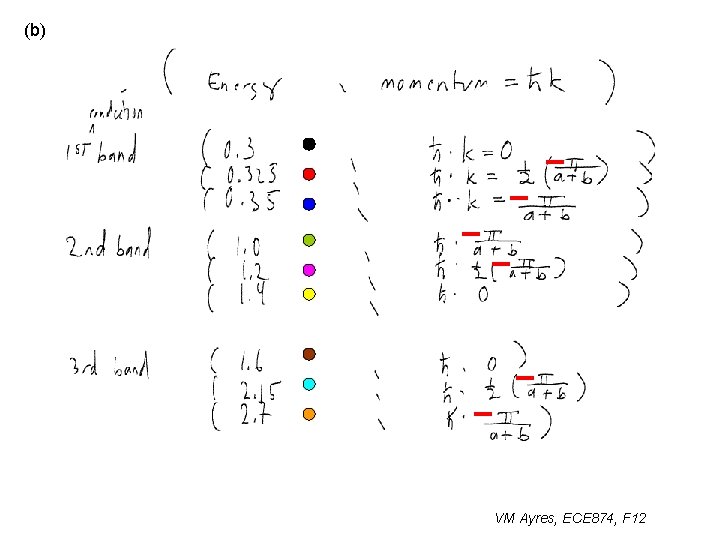 (b)
( Energy , momentum = ℏk )
conduction
1ST ^ band ( 0.3 , ℏ · k = 0 )
( 0.323 , ℏ · k = 1/2 (− π/(a+b)) )
( 0.35 , ℏ · k = − π/(a+b) )
2nd band ( 1.0 , ℏ · − π/(a+b) )
( 1.2 , ℏ · 1/2 (− π/(a+b)) )
( 1.4 , ℏ · 0 )
3rd band ( 1.6 , ℏ · 0 )
( 2.15 , ℏ · 1/2 (− π/(a+b))
( 2.7 , ℏ · − π/(a+b) )
VM Ayres, ECE874, F12